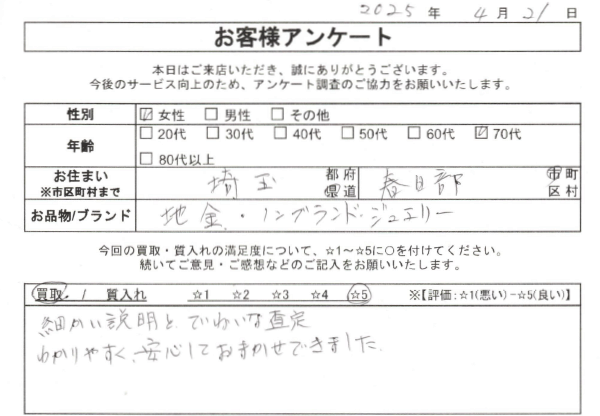 2025 年 4 月 21 日
お客様アンケート
本日はご来店いただき、誠にありがとうございます。
今後のサービス向上のため、アンケート調査のご協力をお願いいたします。
性別 ☑ 女性 □ 男性 □ その他
年齢 □ 20代 □ 30代 □ 40代 □ 50代 □ 60代 ☑ 70代
□ 80代以上
お住まい ※市区町村まで 埼玉 都府県道 春日部 市町区村
お品物/ブランド 地金・ノンブランドジュエリー
今回の買取・質入れの満足度について、☆1～☆5に○を付けてください。
続いてご意見・ご感想などのご記入をお願いいたします。
買取 / 質入れ ☆1 ☆2 ☆3 ☆4 ☆5 ※【評価:☆1(悪い)−☆5(良い)】
細かい説明と、ていねいな査定
わかりやすく、安心しておまかせできました